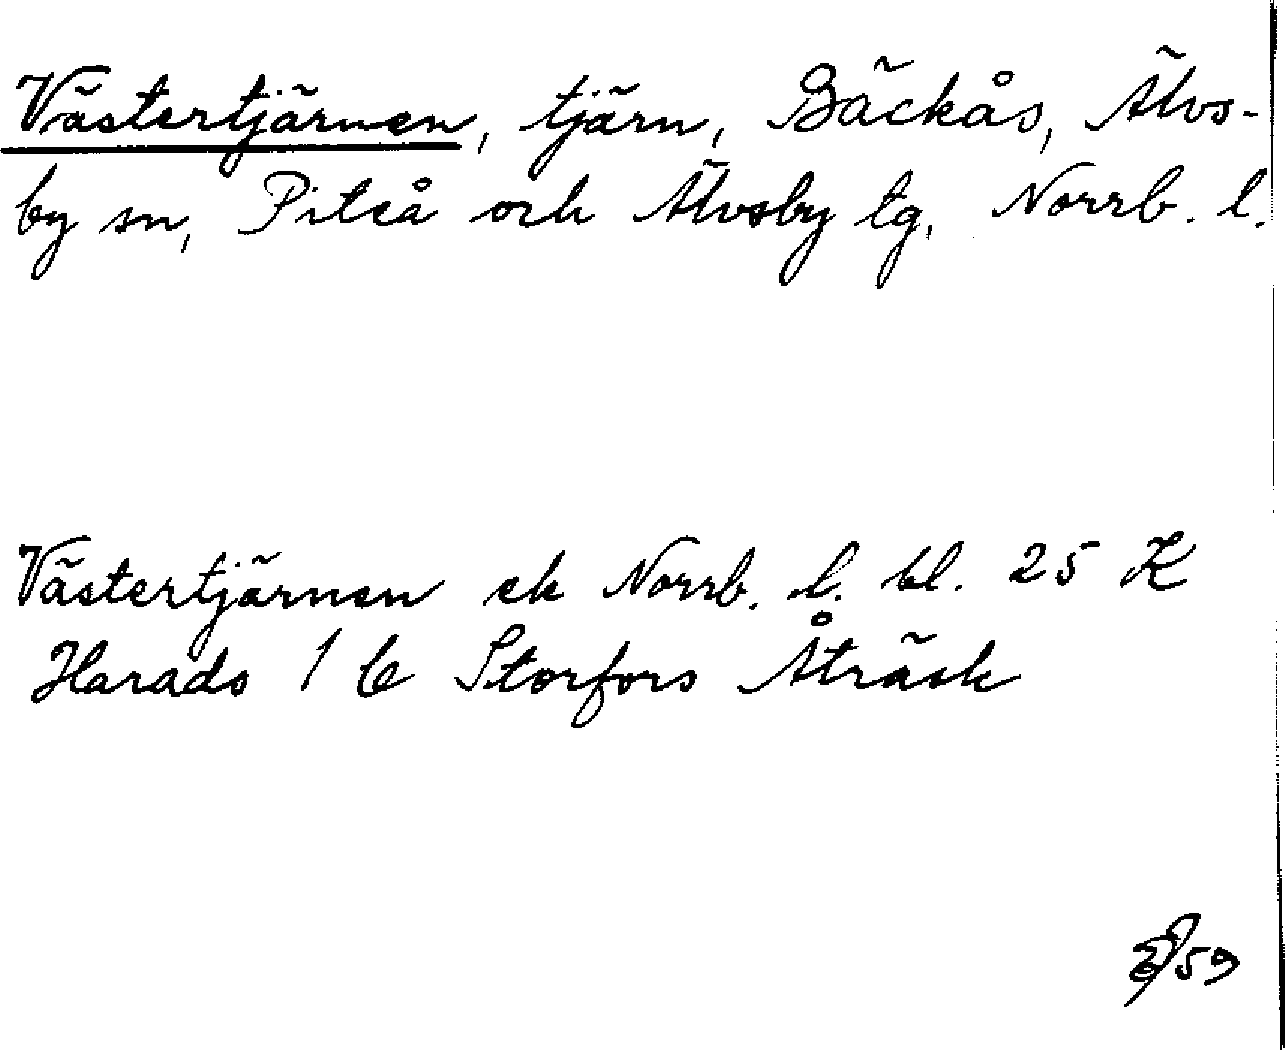 Västertjärnen, tjärn, Bäckås, Älvs-
by sn, Piteå och Älvsby tg, Norrb. l.
Västertjärnen ek Norrb. l. bl. 25 K
Harads 1 C Storfors Åträsk
59